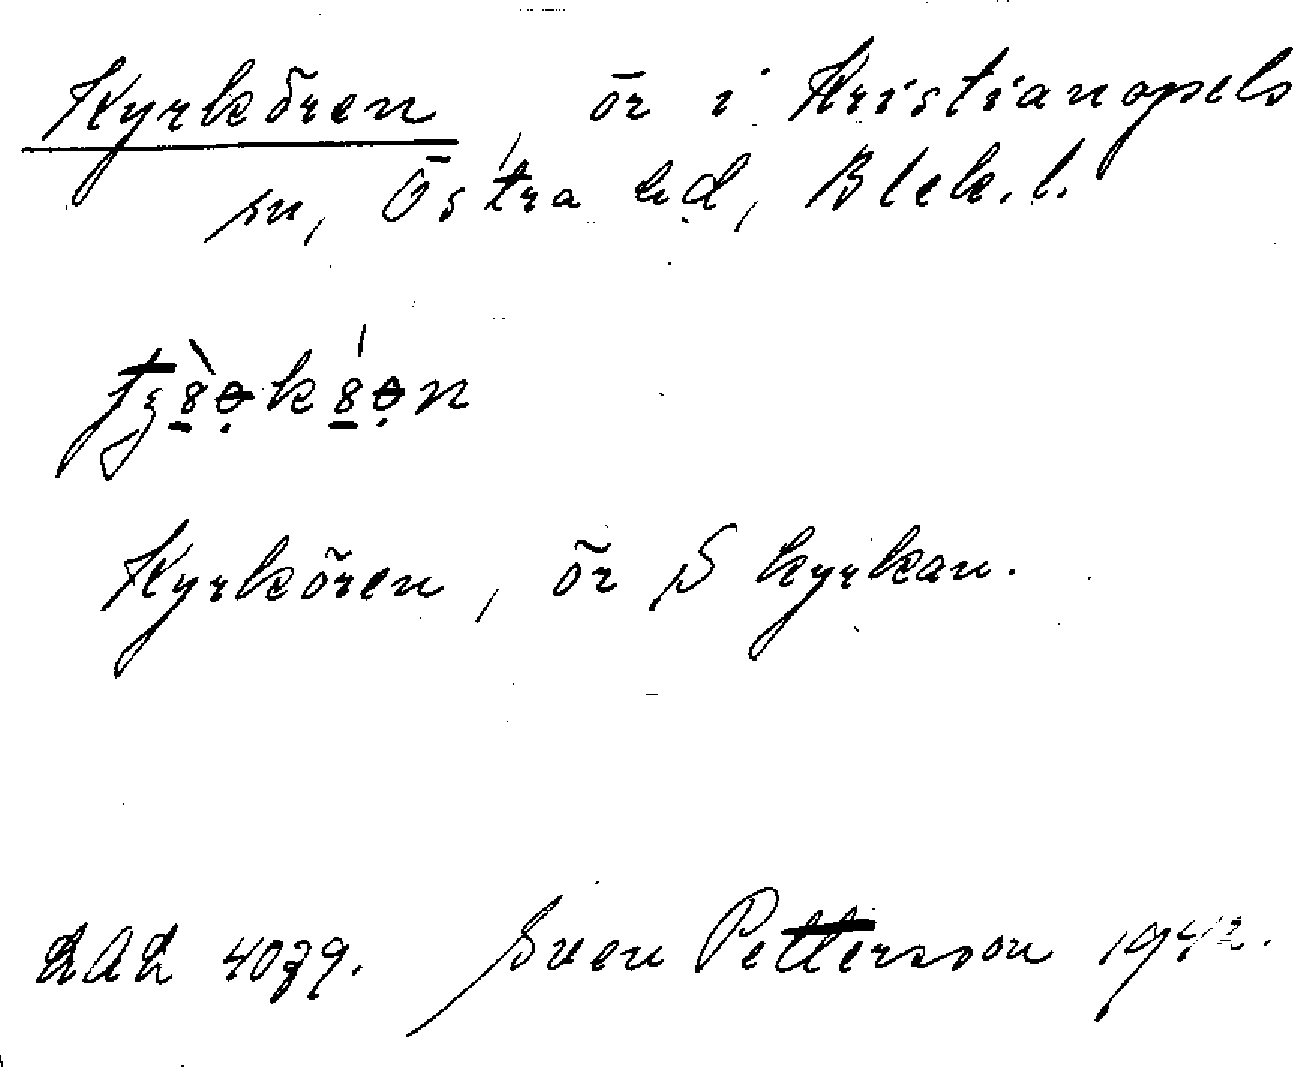 Kyrkören, ör i Kristianopels
sn, Östra hd, Blek. l.
Kyrkören, ör S kyrkan.
LAL 4079. Sven Pettersson 1942.